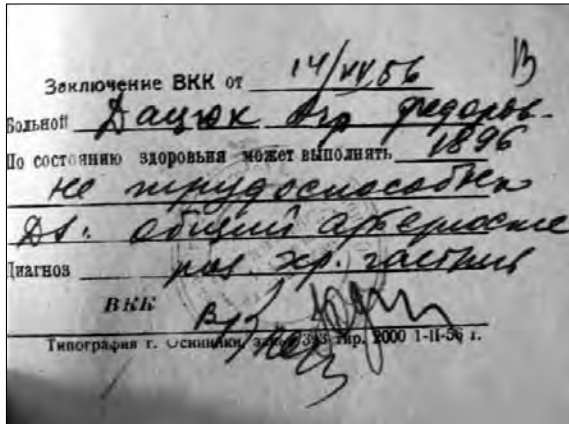 В
Заключение ВКК от 14/ 56
Больной Дацюк Агр Федоров-
По состоянию здоровья может выполнять 1896
не трудоспособна
Ds: общий артериоскле
Диагноз роз. хр. гастрит
ВКК
Типография г. Осинники, заказ 393 тир. 2000 1-II-56 г.